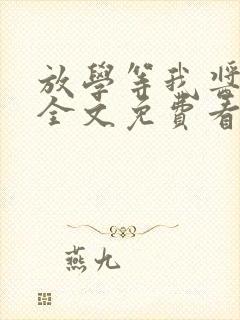 放學等我醬
全文免費看
燕九